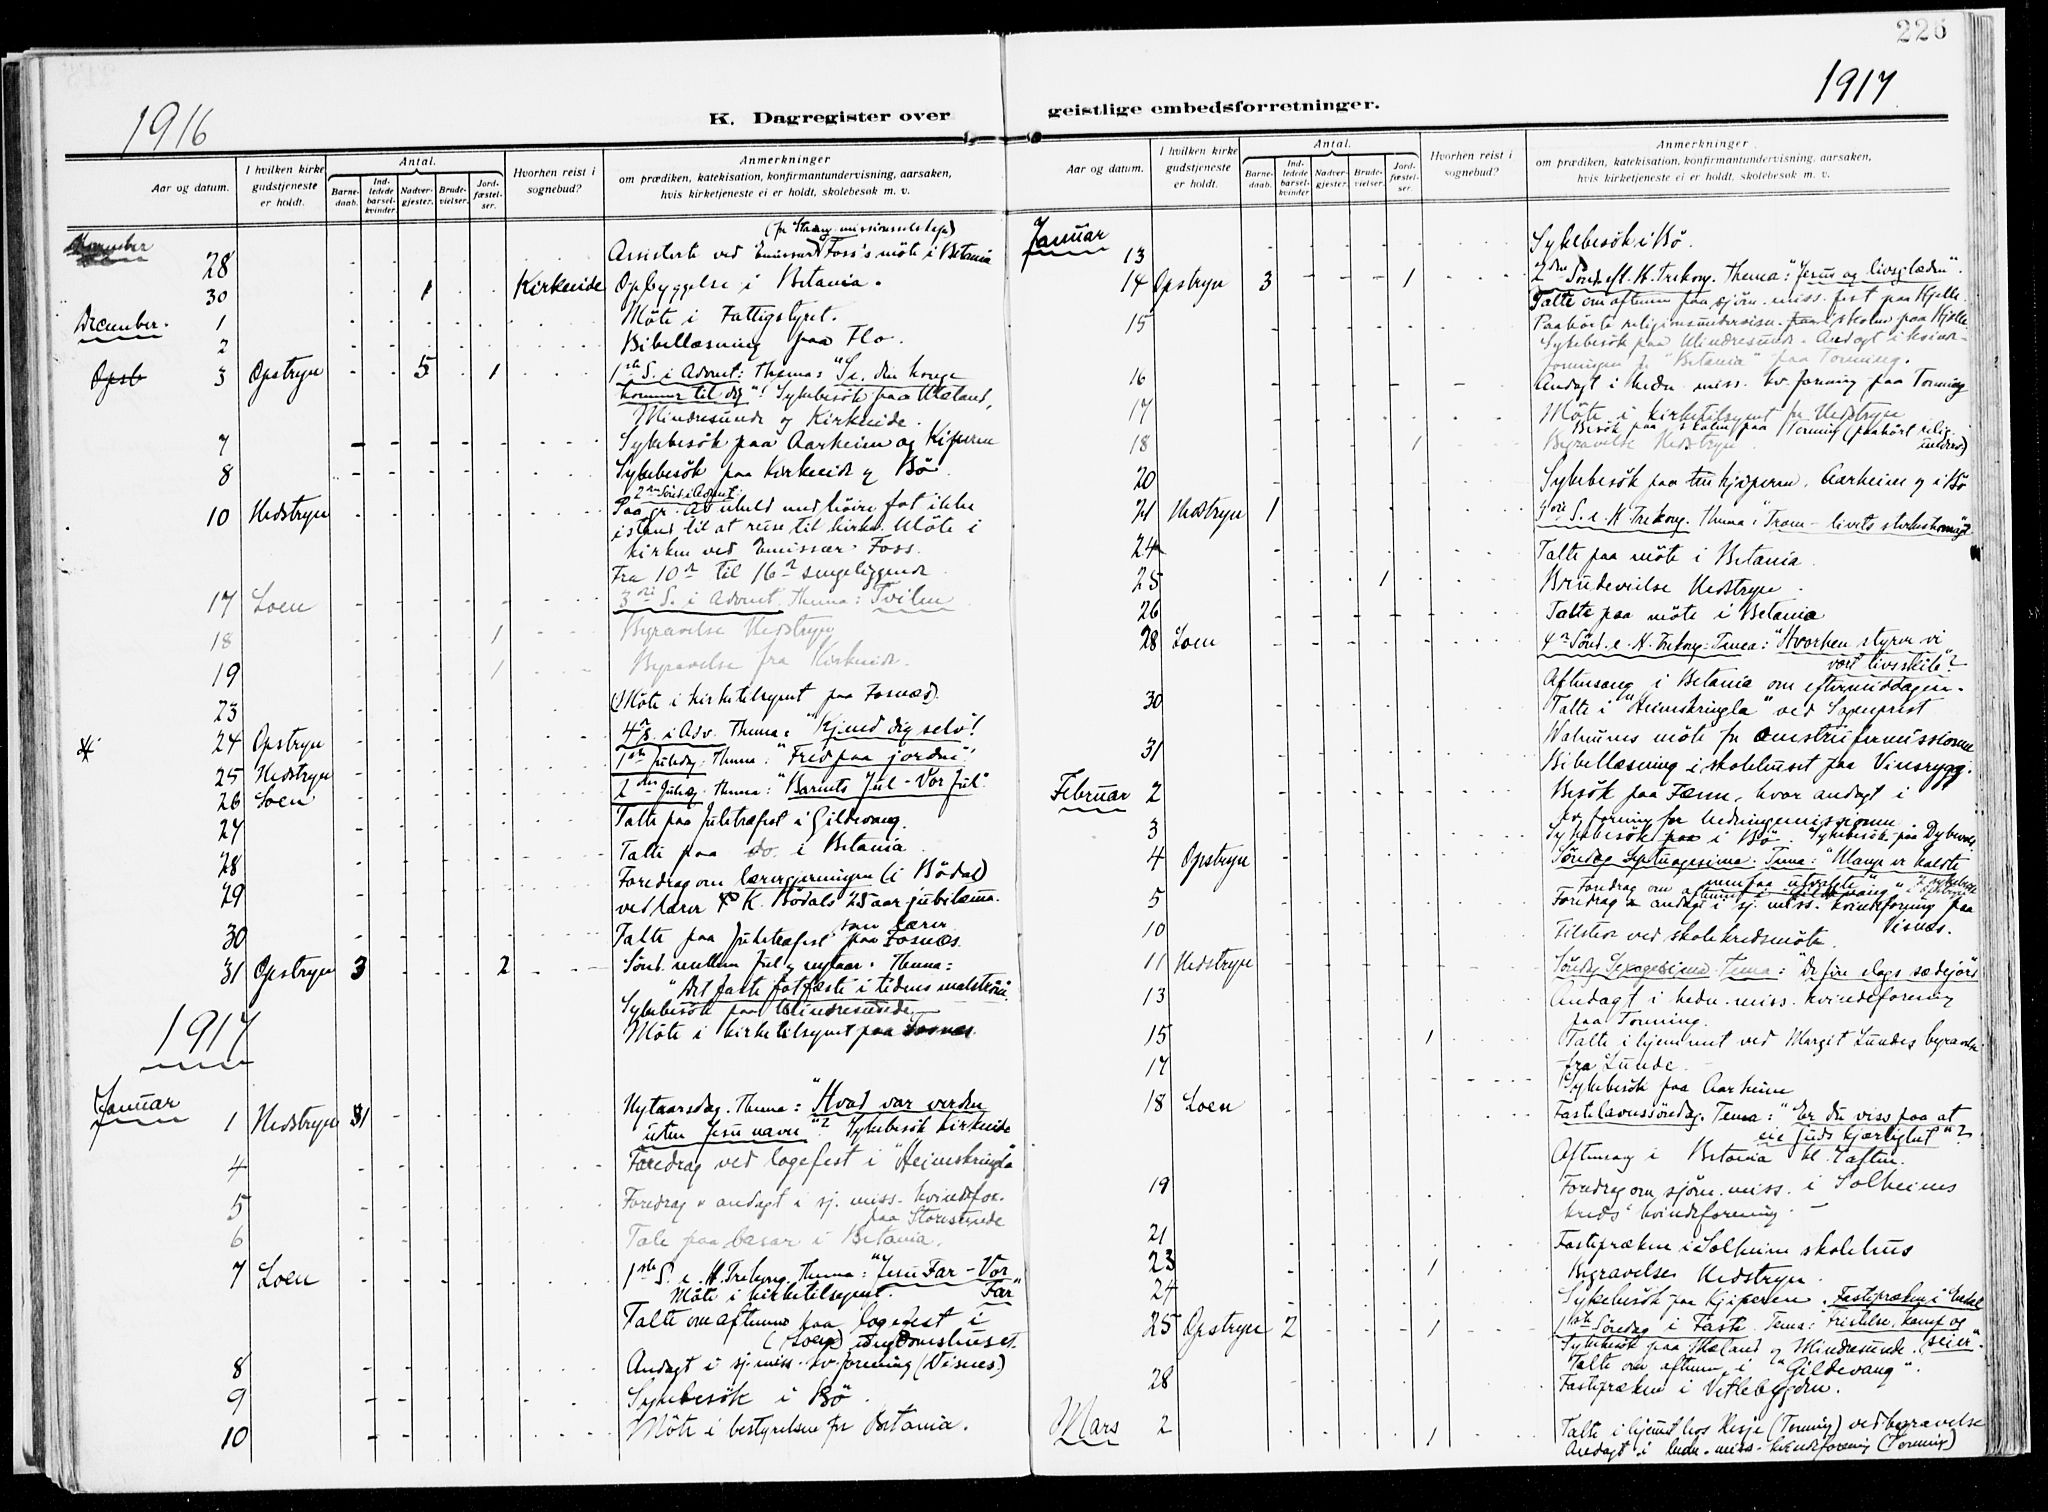 226
1916
1917
K. Dagregister over geistlige embedsforretninger.
Aar og datum.
I hvilken kirke gudstjeneste er holdt.
Antal.
Barne-daab.
Ind-ledede barsel-kvinder
Nadver-gjester.
Brude-vielser.
Jord-fæstel-ser.
Hvorhen reist i sognebud?
Anmerkninger
om prædiken, katekisation, konfirmantundervisning, aarsaken,
hvis kirketjeneste ei er holdt, skolebesøk m. v.
November
28 Assisterte ved Emissær Foss's möte i Betania
30 1 Kirkeeide Opbyggelse i Betania.
December. 1 Möte i Fattigstyret.
2 Bibellæsning paa Flo.
3 Opstryn 5 1 1ste S. i Advent: Thema: "Se, din konge
kommer til dig"! Sykebesök paa Mæland,
Mindresunde og Kirkeeide.
7 Sykebesök paa Aarheim og Kjøperen
8 Sykebesök paa Kirkeeide og Bö
2den Sönd. i Advent
10 Nedstryn Paa gr. av uheld med höire fot ikke
istand til at reise til kirke. Möte i
kirken ved Emissær Foss.
Fra 10de til 16de sengeliggende
17 Loen 3die S. i Advent. Thema: Tvilen
18 1 Begravelse Nedstryn
19 1 Begravelse fra Kirkeeide.
23 (Möte i kirketilsynet paa Fosnæs)
24 Opstryn 4de S. i Adv. Thema: "Kjend dig selv!
25 Nedstryn 1ste Juledag: Thema: "Fred paa jorden"!
26 Loen 2den Juledag. Thema: "Barnets Jul - Vor Jul"
27 Talte paa Juletræfest i Gildevang.
28 Talte paa do. i Betania
29 Foredrag om lærergjerningen (i Bödal)
ved lærer K. Bödals 25 aar jubilæum.
som lærer
30 Talte paa Juletræfest paa Fosnæs.
31 Opstryn 3 2 Sönd. mellem Jul og nytaar. Thema:
"Det faste fotfæste i tidens malström.
Sykebesök paa Mindresunde
Möte i kirketilsynet paa Fosnæs
1917
Januar
1 Nedstryn 1 Nytaarsdag. Thema: "Hvad var verden
uten Jesu navn"? Sykebesök Kirkeeide
4 Foredrag ved logefest i "Heimskringla
5 Foredrag & andagt i sj. miss. kvindefor.
paa Storesunde
6 Tale paa basar i Betania.
7 Loen 1ste S. e. H. Trekong. Thema: "Jesu Far - Vor
Far"
Möte i kirketilsynet.
Talte om aftenen paa logefest i
(Loen) ungdomshuset.
8 Andagt i sj. miss. kv. forening (Visnes)
9 Sykebesök i Bö.
10 Möte i bestyrelsen for Betania.
Aar og datum.
I hvilken kirke gudstjeneste er holdt.
Antal.
Barne-daab.
Ind-ledede barsel-kvinder
Nadver-gjester.
Brude-vielser.
Jord-fæstel-ser.
Hvorhen reist i sognebud?
Anmerkninger
om prædiken, katekisation, konfirmantundervisning, aarsaken,
hvis kirketjeneste ei er holdt, skolebesøk m. v.
Januar
13 Sykebesök i Bö.
14 Opstryn 3 1 2den Sönd. eft. H. Trekong. Thema: "Jesus og livsglæden".
Talte om aftenen paa sjöm. miss. fest paa Hjelle.
15 Paahörte religionsundervisn. i skolen paa Hjelle
Sykebesök paa Mindresunde. Andagt i kvinde-
foreningen for "Betania" paa Tonning.
16 Andagt i hedn. miss. kv. forening paa Tonning
17 Möte i kirketilsynet for Nedstryn
Besök paa skolen paa Tonning (paahört relig.
underv.)
18 1 Begravelse Nedstryn.
20 Sykebesök paa Kjøperen, Aarheim og i Bö
21 Nedstryn 1 3die S. e. H. Trekong. Thema: "Troen - livets sterkeste magt
24 Talte paa möte i Betania.
25 1 Brudevielse Nedstryn.
26 Talte paa möte i Betania
28 Loen 4de Sönd. e. H. Trekong: Tema: "Hvorhen styrer vi
vort livsskib"?
Aftensang i Betania om eftermiddagen.
30 Talte i "Heimskringla" ved Sogneprest
möte for
31 Bibellæsning i skolehuset paa Vinsrygg.
Februar 2 Besök paa Fænn, hvor andagt i
kv. forening for hedningemissionen
3 Sykebesök i Bö. Sykebesök paa
4 Opstryn Söndag Septuagesima. Tema: "Mange er kaldte
men faa utvalgte"
5 Foredrag & andagt i sj. miss. kvindeforening paa
Visnes.
10 Tilstede ved skolekredsmöte.
11 Nedstryn Söndag Sexagesima. Tema: "De fire slags sædejörd
13 Andagt i hedn. miss. kvindeforening
paa Tonning.
15 1 Talte i hjemmet ved Margit Lundes begravelse
fra Lunde.
17 Sykebesök paa Aarheim
18 Loen Fastelavnssöndag. Tema: "Er du viss paa at
eie Guds kjærlighet"?
Aftensang i Betania kl. 7 aften.
19 Foredrag om sjöm. miss. i Solheims
kreds' kvindeforening.
21 Fasteprækен i Solheim skolehus
23 1 Begravelse Nedstryn.
24 Sykebesök paa Kjøperen.
25 Opstryn 2 1 1ste Söndag i Faste. Tema: Fristelse, kamp og
seier".
Sykebesök paa Mæland og Mindresunde.
Talte om aftenen i "Gildevang".
28 Fastepræken i Vetlebygden.
Mars 2 1 Talte i hjemmet hos (Tonning) ved begravelse
Andagt i hedn. miss. kvindeforening (Tonning)